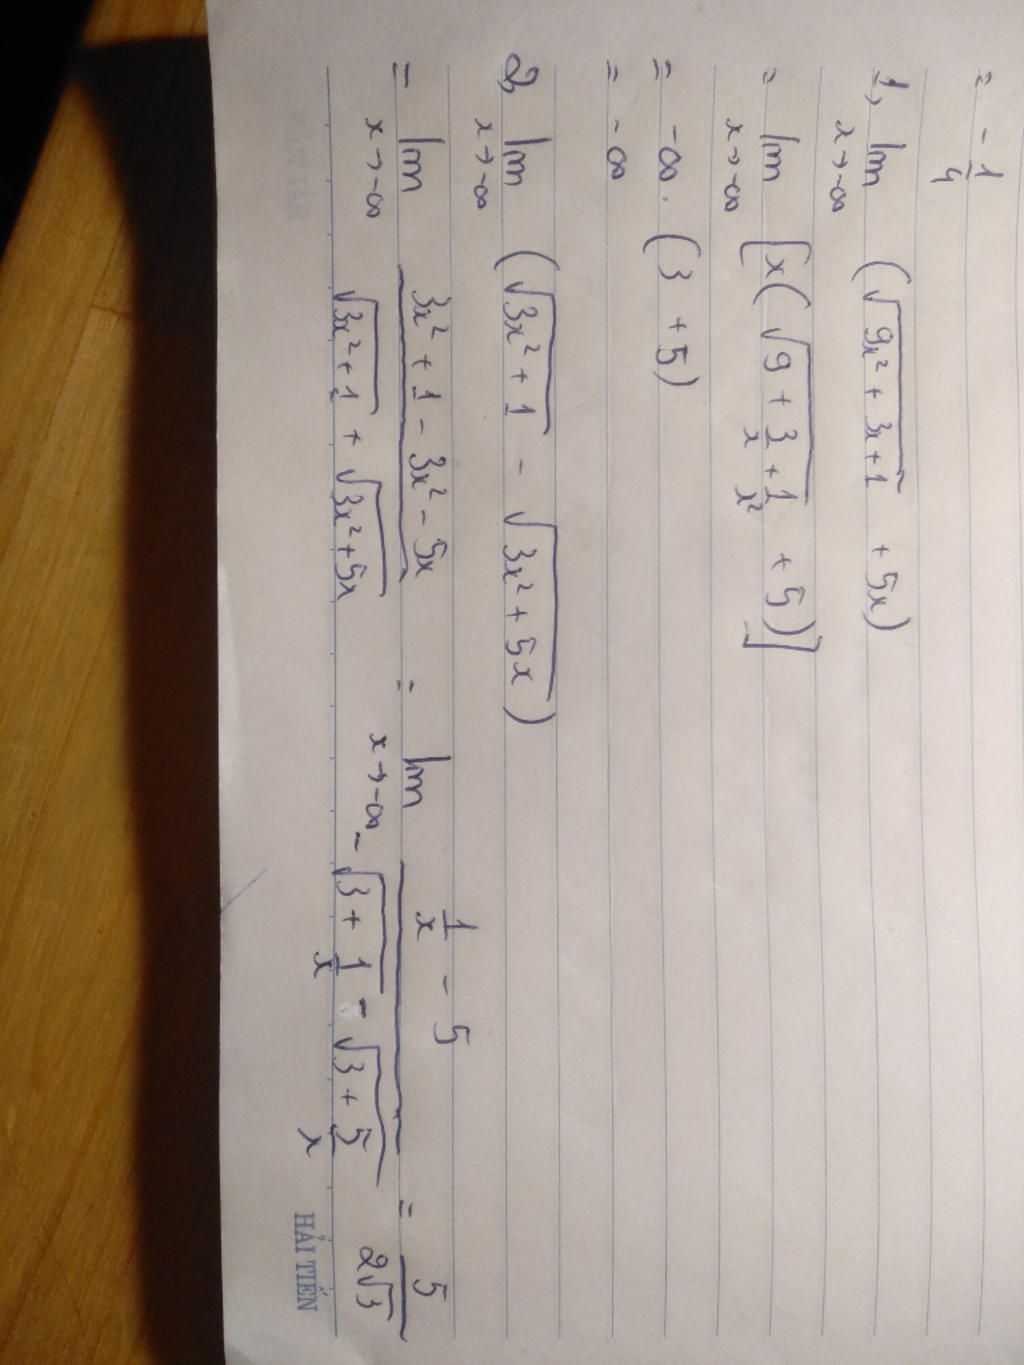 = - 1/4
1, lim x→-∞ (√(9x² + 3x + 1) + 5x)
= lim x→-∞ [x(√(9 + 3/x + 1/x²) + 5)]
= -∞. (3 + 5)
= -∞
2, lim x→-∞ (√(3x² + 1) - √(3x² + 5x))
= lim x→-∞ (3x² + 1 - 3x² - 5x)/(√(3x² + 1) + √(3x² + 5x)) = lim x→-∞ (1/x - 5)/(-√(3 + 1/x) - √(3 + 5/x)) = 5/(2√3)
HẢI TIẾN